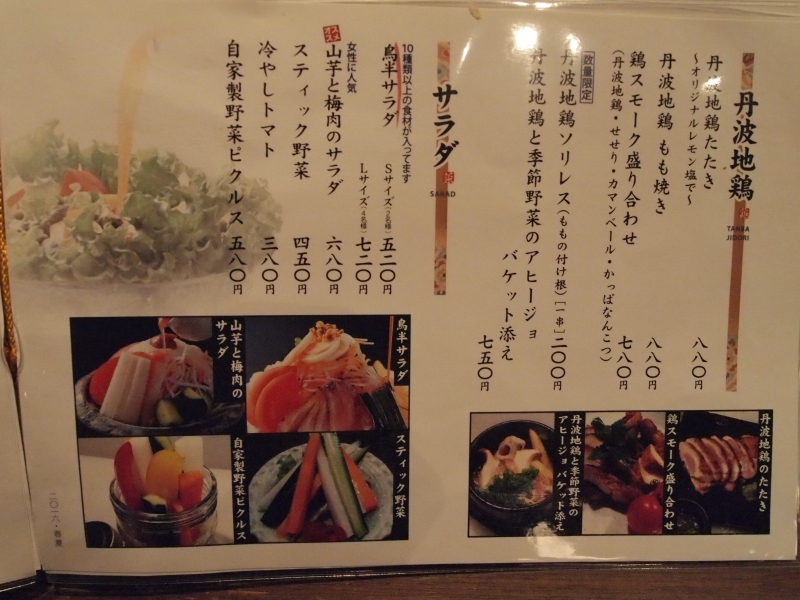 丹波地鶏
TANBA
JIDORI
丹波地鶏たたき 八八〇円
〜オリジナルレモン塩で〜
丹波地鶏 もも焼き 八八〇円
鶏スモーク盛り合わせ 七八〇円
(丹波地鶏・せせり・カマンベール・かっぱなんこつ)
数量限定
丹波地鶏ソリレス(ももの付け根)[一串]二〇〇円
丹波地鶏と季節野菜のアヒージョ
バケット添え 七五〇円
サラダ
SARAD
10種類以上の食材が入ってます
鳥半サラダ Sサイズ(2名様) 五二〇円
Lサイズ(4名様) 七二〇円
女性に人気
山芋と梅肉のサラダ 六八〇円
スティック野菜 四五〇円
冷やしトマト 三八〇円
自家製野菜ピクルス 五八〇円
丹波地鶏のたたき
鶏スモーク盛り合わせ
丹波地鶏と季節野菜の
アヒージョ バケット添え
鳥半サラダ
山芋と梅肉の
サラダ
スティック野菜
自家製野菜ピクルス